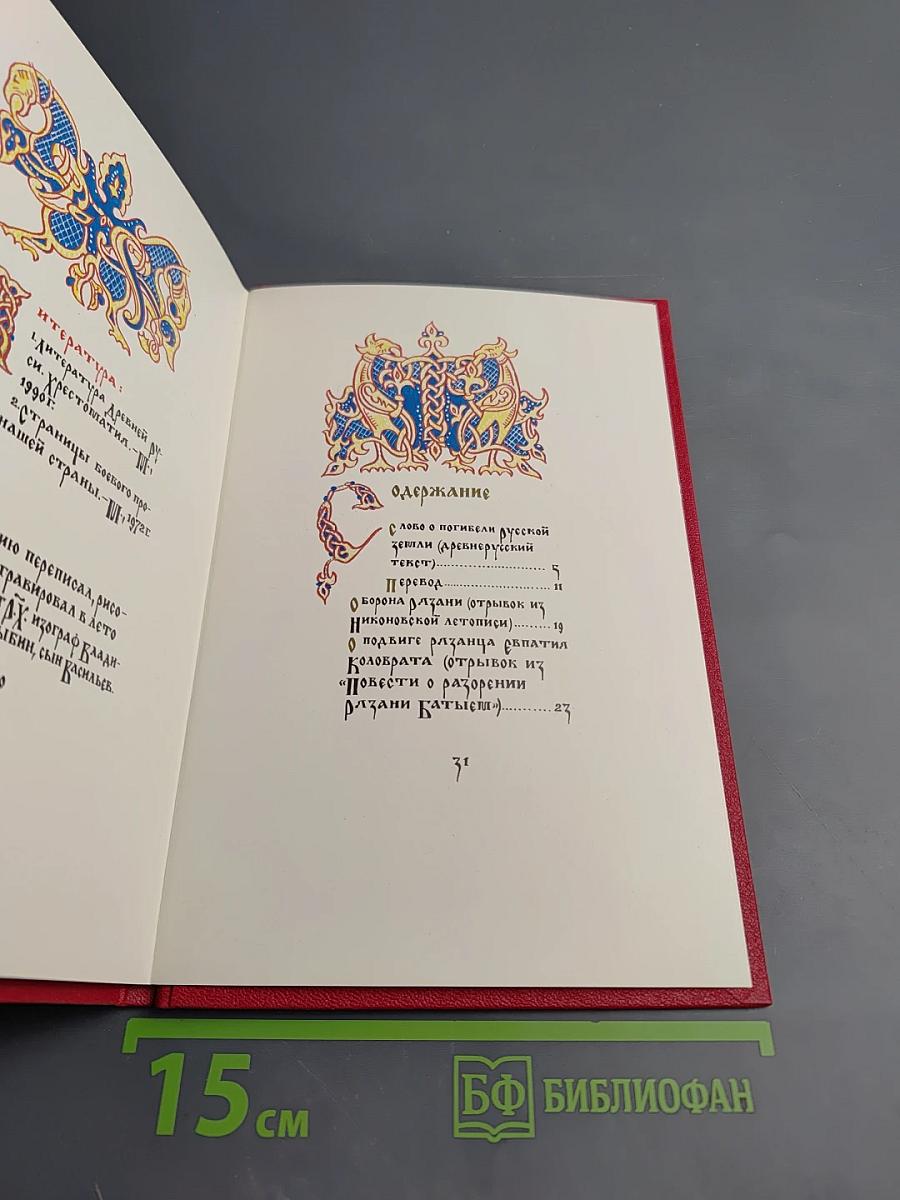 итература:
1. Литература Древней Ру-
си. Хрестоматия. – М.,
1990 г.
2. Страницы боевого про-
нашей страны. – М., 1972 г.
ию переписал, рисо-
гравировал в лето
изограф Влади-
ыбин, сын Васильев.
Содержание
Слово о погибели русской
земли (древнерусский
текст)........................... 5
Перевод........................... 11
Оборона Рязани (отрывок из
Никоновской летописи)........ 19
О подвиге рязанца Евпатия
Коловрата (отрывок из
«Повести о разорении
Рязани Батыем»)........... 23
31
15 см
БФ БИБЛИОФАН